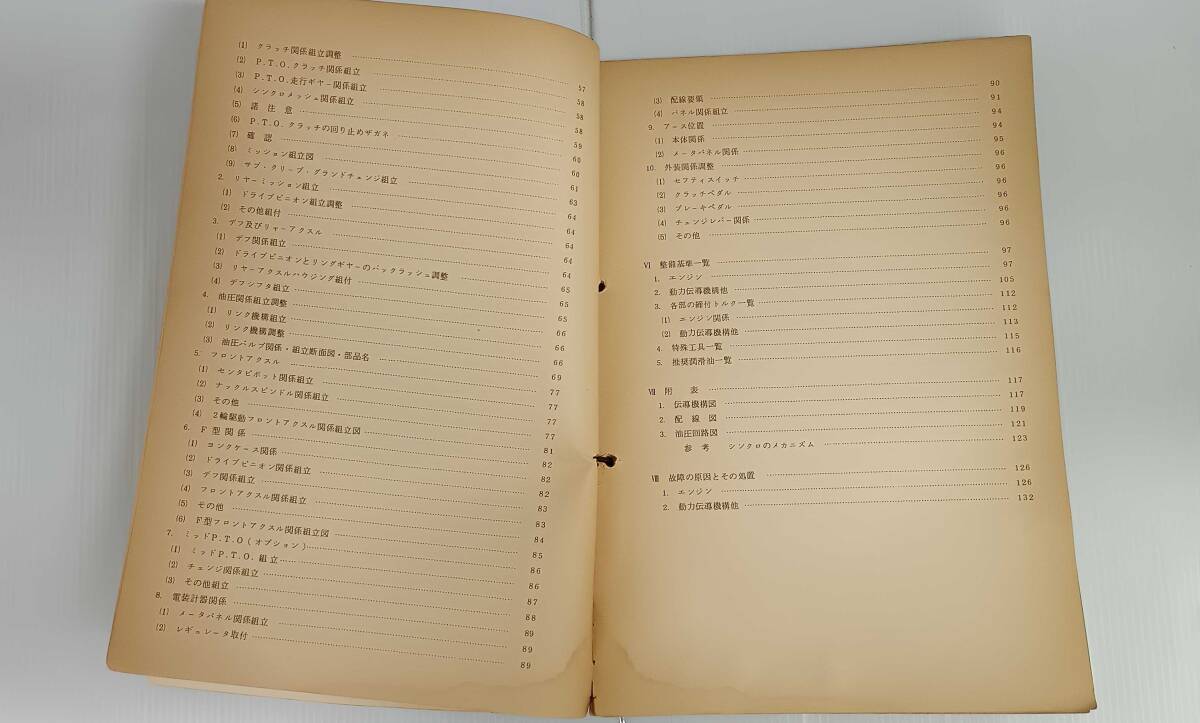 (1) クラッチ関係組立調整 57
(2) P.T.O.クラッチ関係組立 58
(3) P.T.O.走行ギヤー関係組立 58
(4) シンクロメッシュ関係組立 58
(5) 諸注意 59
(6) P.T.O.クラッチの回り止めザガネ 60
(7) 確認 60
(8) ミッション組立図 61
(9) サブ・クリープ・グランドチェンジ組立 63
2. リヤーミッション組立 64
(1) ドライブピニオン組立調整 64
(2) その他組付 64
3. デフ及びリャーアクスル 64
(1) デフ関係組立 64
(2) ドライブピニオンとリングギヤーのバックラッシュ調整 65
(3) リヤーアクスルハウジング組付 65
(4) デフシフタ組立 65
4. 油圧関係組立調整 66
(1) リンク機構組立 66
(2) リンク機構調整 66
(3) 油圧バルブ関係・組立断面図・部品名 69
5. フロントアクスル 77
(1) センタピボット関係組立 77
(2) ナックルスピンドル関係組立 77
(3) その他 77
(4) 2輪駆動フロントアクスル関係組立図 81
6. F型関係 82
(1) コンクケース関係 82
(2) ドライブピニオン関係組立 82
(3) デフ関係組立 83
(4) フロントアクスル関係組立 83
(5) その他 84
(6) F型フロントアクスル関係組立図 85
7. ミッドP.T.O(オプション) 86
(1) ミッドP.T.O.組立 86
(2) チェンジ関係組立 87
(3) その他組立 88
8. 電装計器関係 89
(1) メータパネル関係組立 89
(2) レギュレータ取付 89
(3) 配線要領 90
(4) パネル関係組立 91
9. アース位置 94
(1) 本体関係 94
(2) メータパネル関係 95
10. 外装関係調整 96
(1) セフティスイッチ 96
(2) クラッチペダル 96
(3) ブレーキペダル 96
(4) チェンジレバー関係 96
(5) その他 96
Ⅵ 整備基準一覧 97
1. エンジン 97
2. 動力伝導機構他 105
3. 各部の締付トルク一覧 112
(1) エンジン関係 112
(2) 動力伝導機構他 113
4. 特殊工具一覧 115
5. 推奨潤滑油一覧 116
Ⅶ 附表 117
1. 伝導機構図 117
2. 配線図 119
3. 油圧回路図 121
参考 シンクロのメカニズム 123
Ⅷ 故障の原因とその処置 126
1. エンジン 126
2. 動力伝導機構他 132